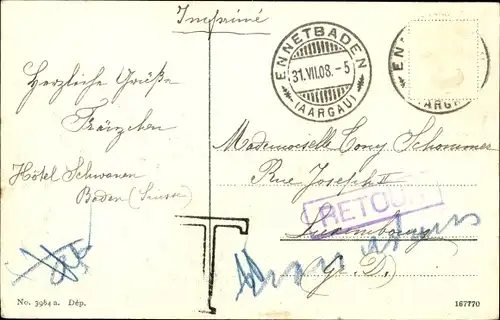 Imprimé
ENNETBADEN
31.VII.08.-5
(AARGAU)
Herzliche Grüße
Fränzchen
Hôtel Schwanen
Baden (Suisse)
Mademoiselle Cony Schommer
Rue Joseph II
RETOUR
Luxembourg
(Gr. D.)
T
No. 3984 a. Dép.
167770